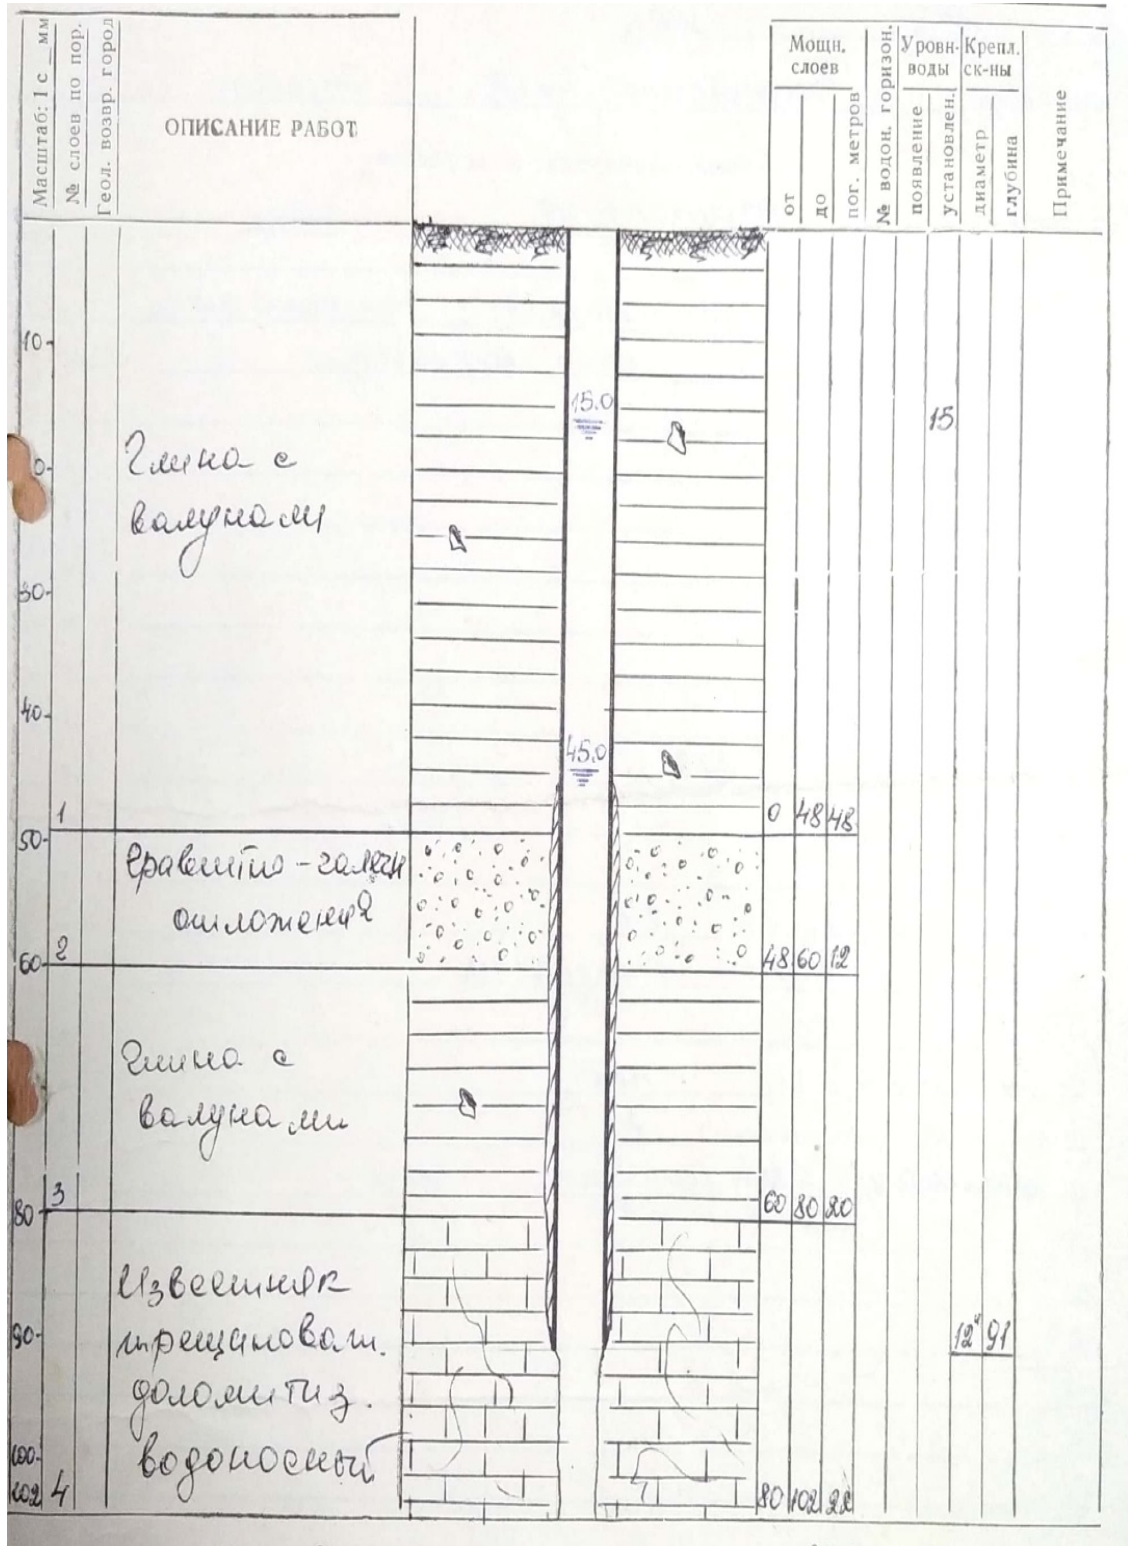 Масштаб: 1 с _ мм
№ слоев по пор.
Геол. возвр. город
ОПИСАНИЕ РАБОТ
Мощн.
слоев
от
до
пог. метров
№ водон. горизон.
Уровн-
воды
появление
установлен.
Крепл.
ск-ны
диаметр
глубина
Примечание
10
15.0
15
Глина с
валунами
0
30
40
45.0
1
0 48 48
50
Гравийно-галечн
отложения
2
48 60 12
60
Глина с
валунами
3
60 80 20
80
Известняк
90
12" 91
трещиноват.
доломитиз.
водоносный
100
102
4
80 102 22